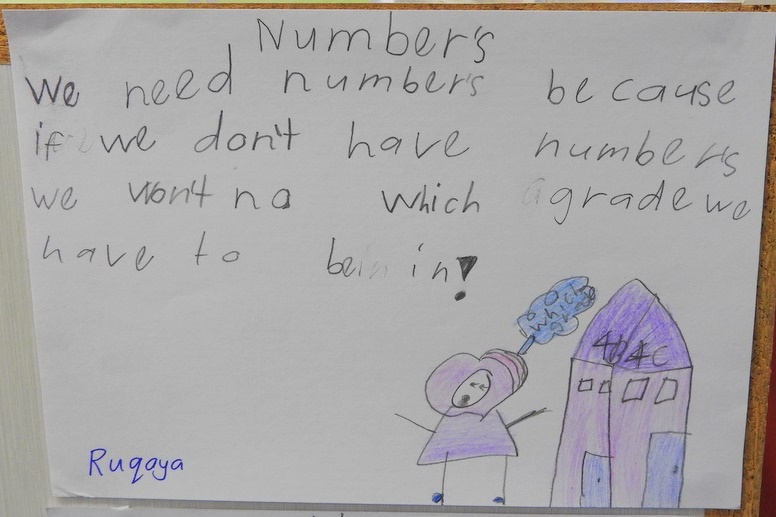 Number's
We need number's because
if we don't have number's
we won't no which grade we
have to be in!
which
grade
4B 4C
Ruqaya